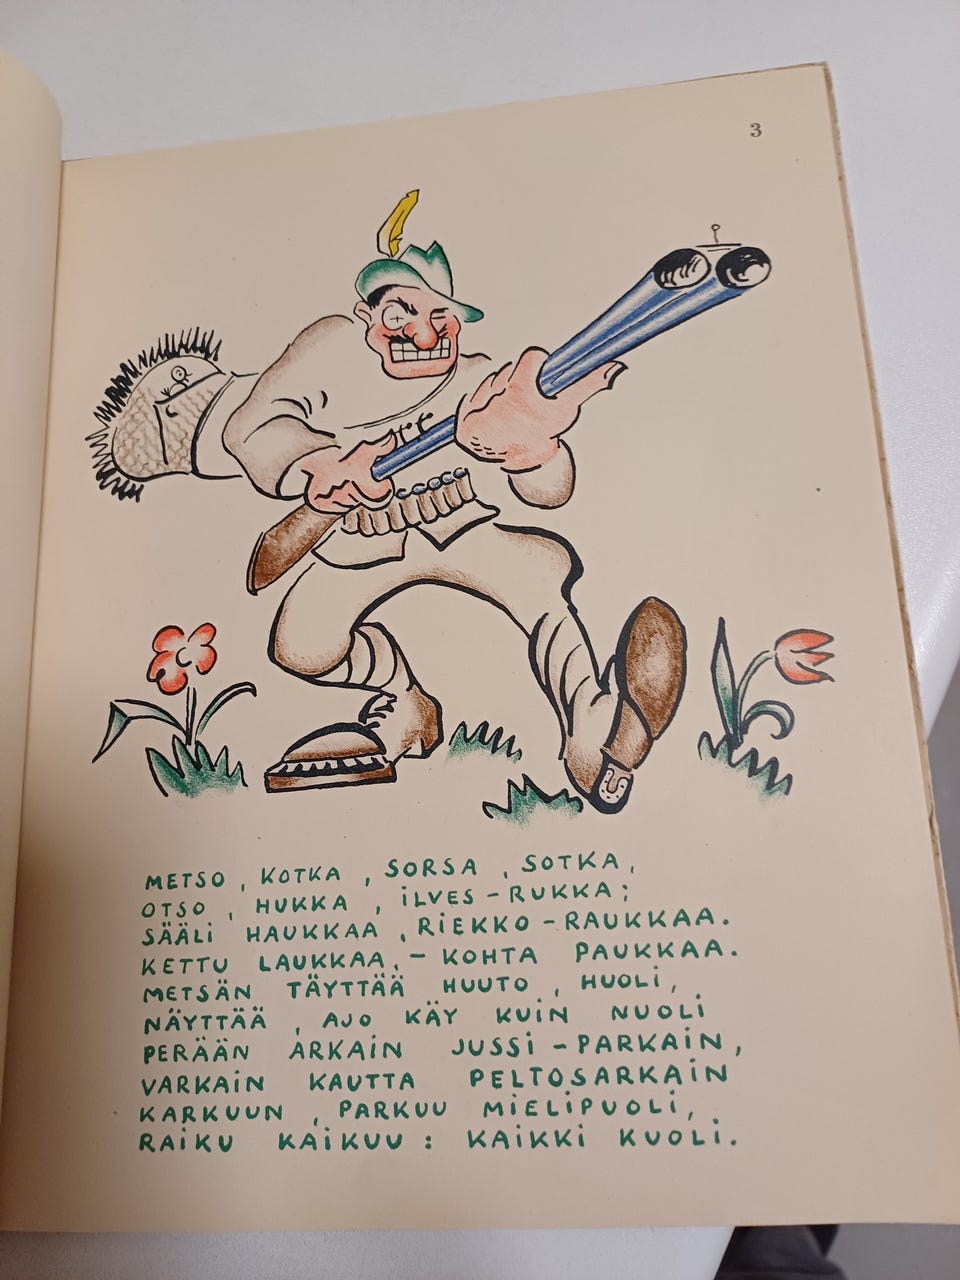 3
METSO, KOTKA, SORSA, SOTKA,
OTSO, HUKKA, iLVES-RUKKA;
SÄÄLi HAUKKAA, RiEKKO-RAUKKAA.
KETTU LAUKKAA,- KOHTA PAUKKAA.
METSÄN TÄYTTÄÄ HUUTO, HUOLi,
NÄYTTÄÄ, AJO KÄY KUiN NUOLi
PERÄÄN ARKAiN JUSSi-PARKAiN,
VARKAiN KAUTTA PELTOSARKAiN
KARKUUN, PARKUU MiELiPUOLi,
RAiKU KAiKUU: KAiKKi KUOLi.